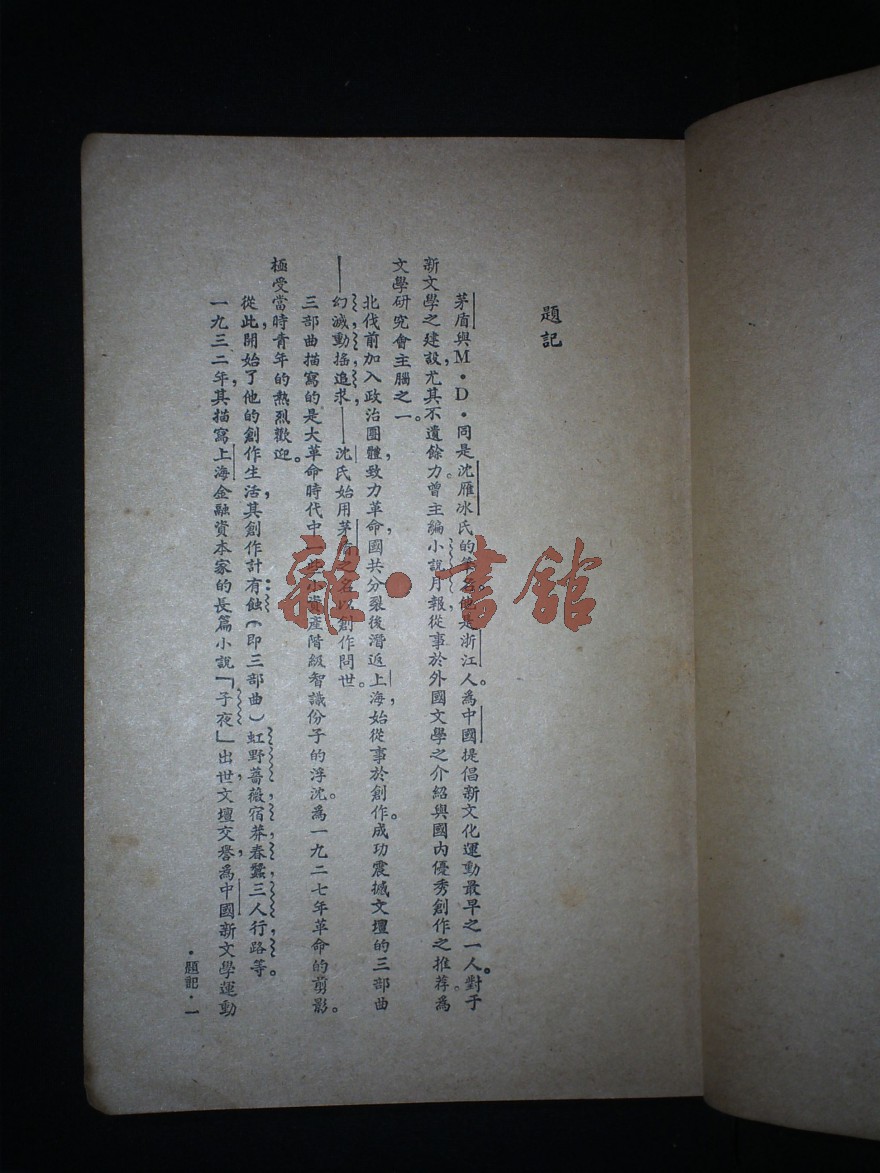 題記
茅盾與M・D・同是沈雁冰氏的筆名。他是浙江人。為中國提倡新文化運動最早之一人。對于
新文學之建設，尤其不遺餘力。曾主編小說月報，從事於外國文學之介紹與國內優秀創作之推荐。為
文學研究會主腦之一。
北伐前加入政治團體，致力革命，國共分裂後，潛返上海，始從事於創作。成功震撼文壇的三部曲
——幻滅，動搖，追求——沈氏始用茅盾之名以創作問世。
三部曲描寫的是大革命時代中一些小資產階級智識份子的浮沈。為一九二七年革命的剪影。
極受當時青年的熱烈歡迎。
從此，開始了他的創作生活，其創作計有：蝕（即三部曲）虹，野薔薇，宿莽，春蠶，三人行，路等。
一九三二年，其描寫上海金融資本家的長篇小說「子夜」出世，文壇交譽，為中國新文學運動
・題記・一
雜・書館